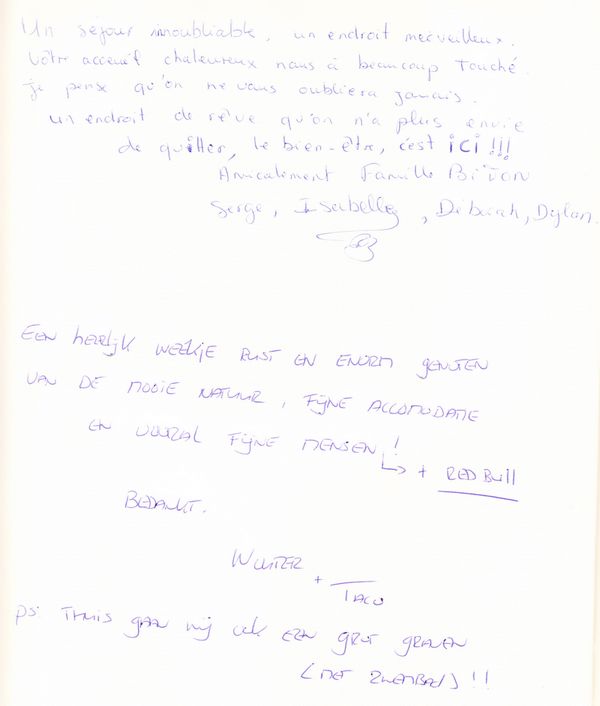 Un séjour inoubliable, un endroit merveilleux.
Votre accueil chaleureux nous à beaucoup Touché.
je pense qu'on ne vous oubliera jamais.
un endroit de rêve qu'on n'a plus envie
de quitter, le bien-être, c'est ici !!!
Amicalement Famille BiTON
Serge, Isabelle, Déborah, Dylan.
EEN heerlijk WEEKJE RUST EN ENORM genoten
VAN DE MOOIE NATUUR, FIJNE ACCOMODATIE
EN VOORAL FIJNE MENSEN!
↳ + RED Bull
BEDANKT.
WOUTER
+
TACO
PS: THUIS gaan wij ook EEN GROT GRAVEN
(MET ZWEMBAD) !!